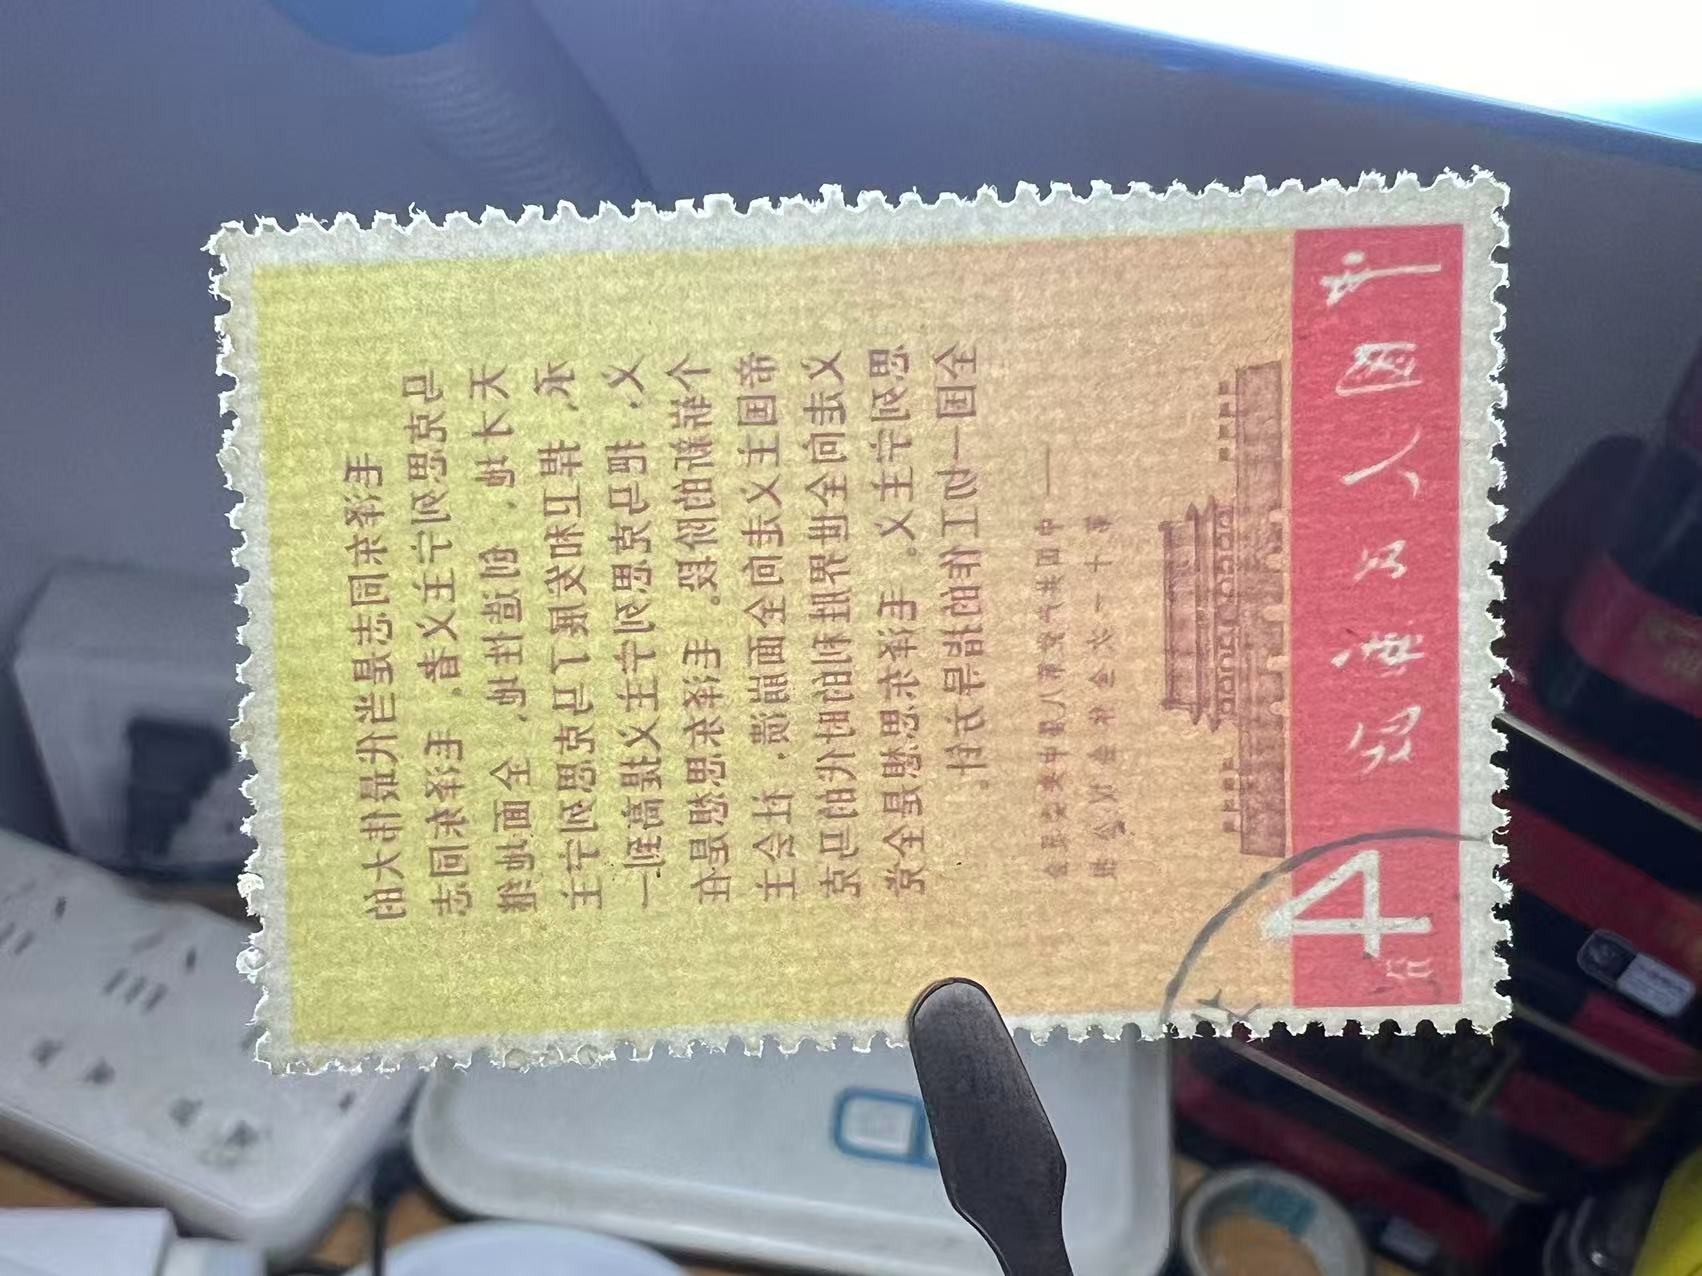 毛泽东同志是当代最伟大的
马克思列宁主义者。毛泽东同志
天才地、创造性地、全面地继
承、捍卫和发展了马克思列宁主
义,把马克思列宁主义提高到一
个崭新的阶段。毛泽东思想是在
帝国主义走向全面崩溃,社会主
义走向全世界胜利的时代的马克
思列宁主义。毛泽东思想是全党
全国一切工作的指导方针。
——中国共产党第八届中央委员会
第十一次全体会议公报
中国人民邮政 4分